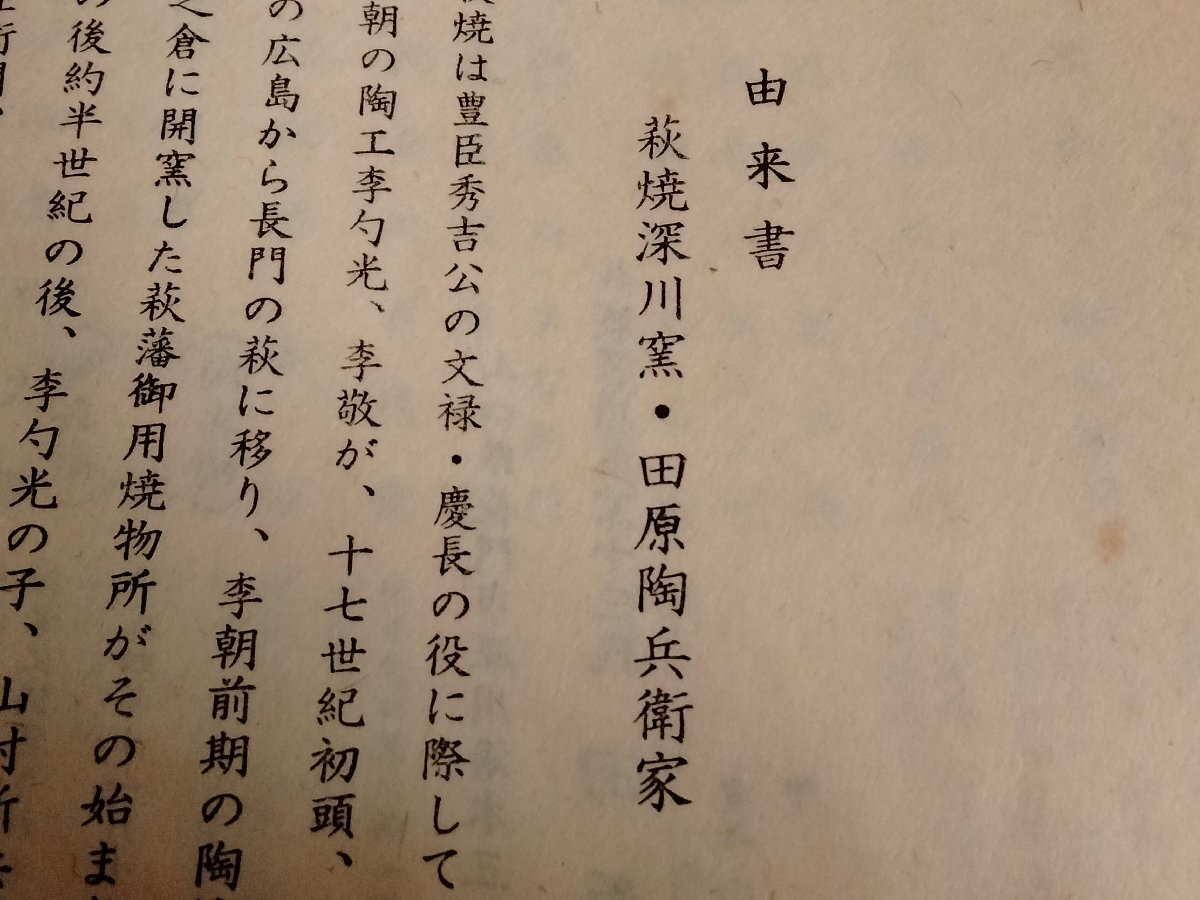 由来書
萩焼深川窯・田原陶兵衛家
焼は豊臣秀吉公の文禄・慶長の役に際して
朝の陶工李勺光、李敬が、十七世紀初頭、
の広島から長門の萩に移り、李朝前期の陶
之倉に開窯した萩藩御用焼物所がその始ま
の後約半世紀の後、李勺光の子、山村新